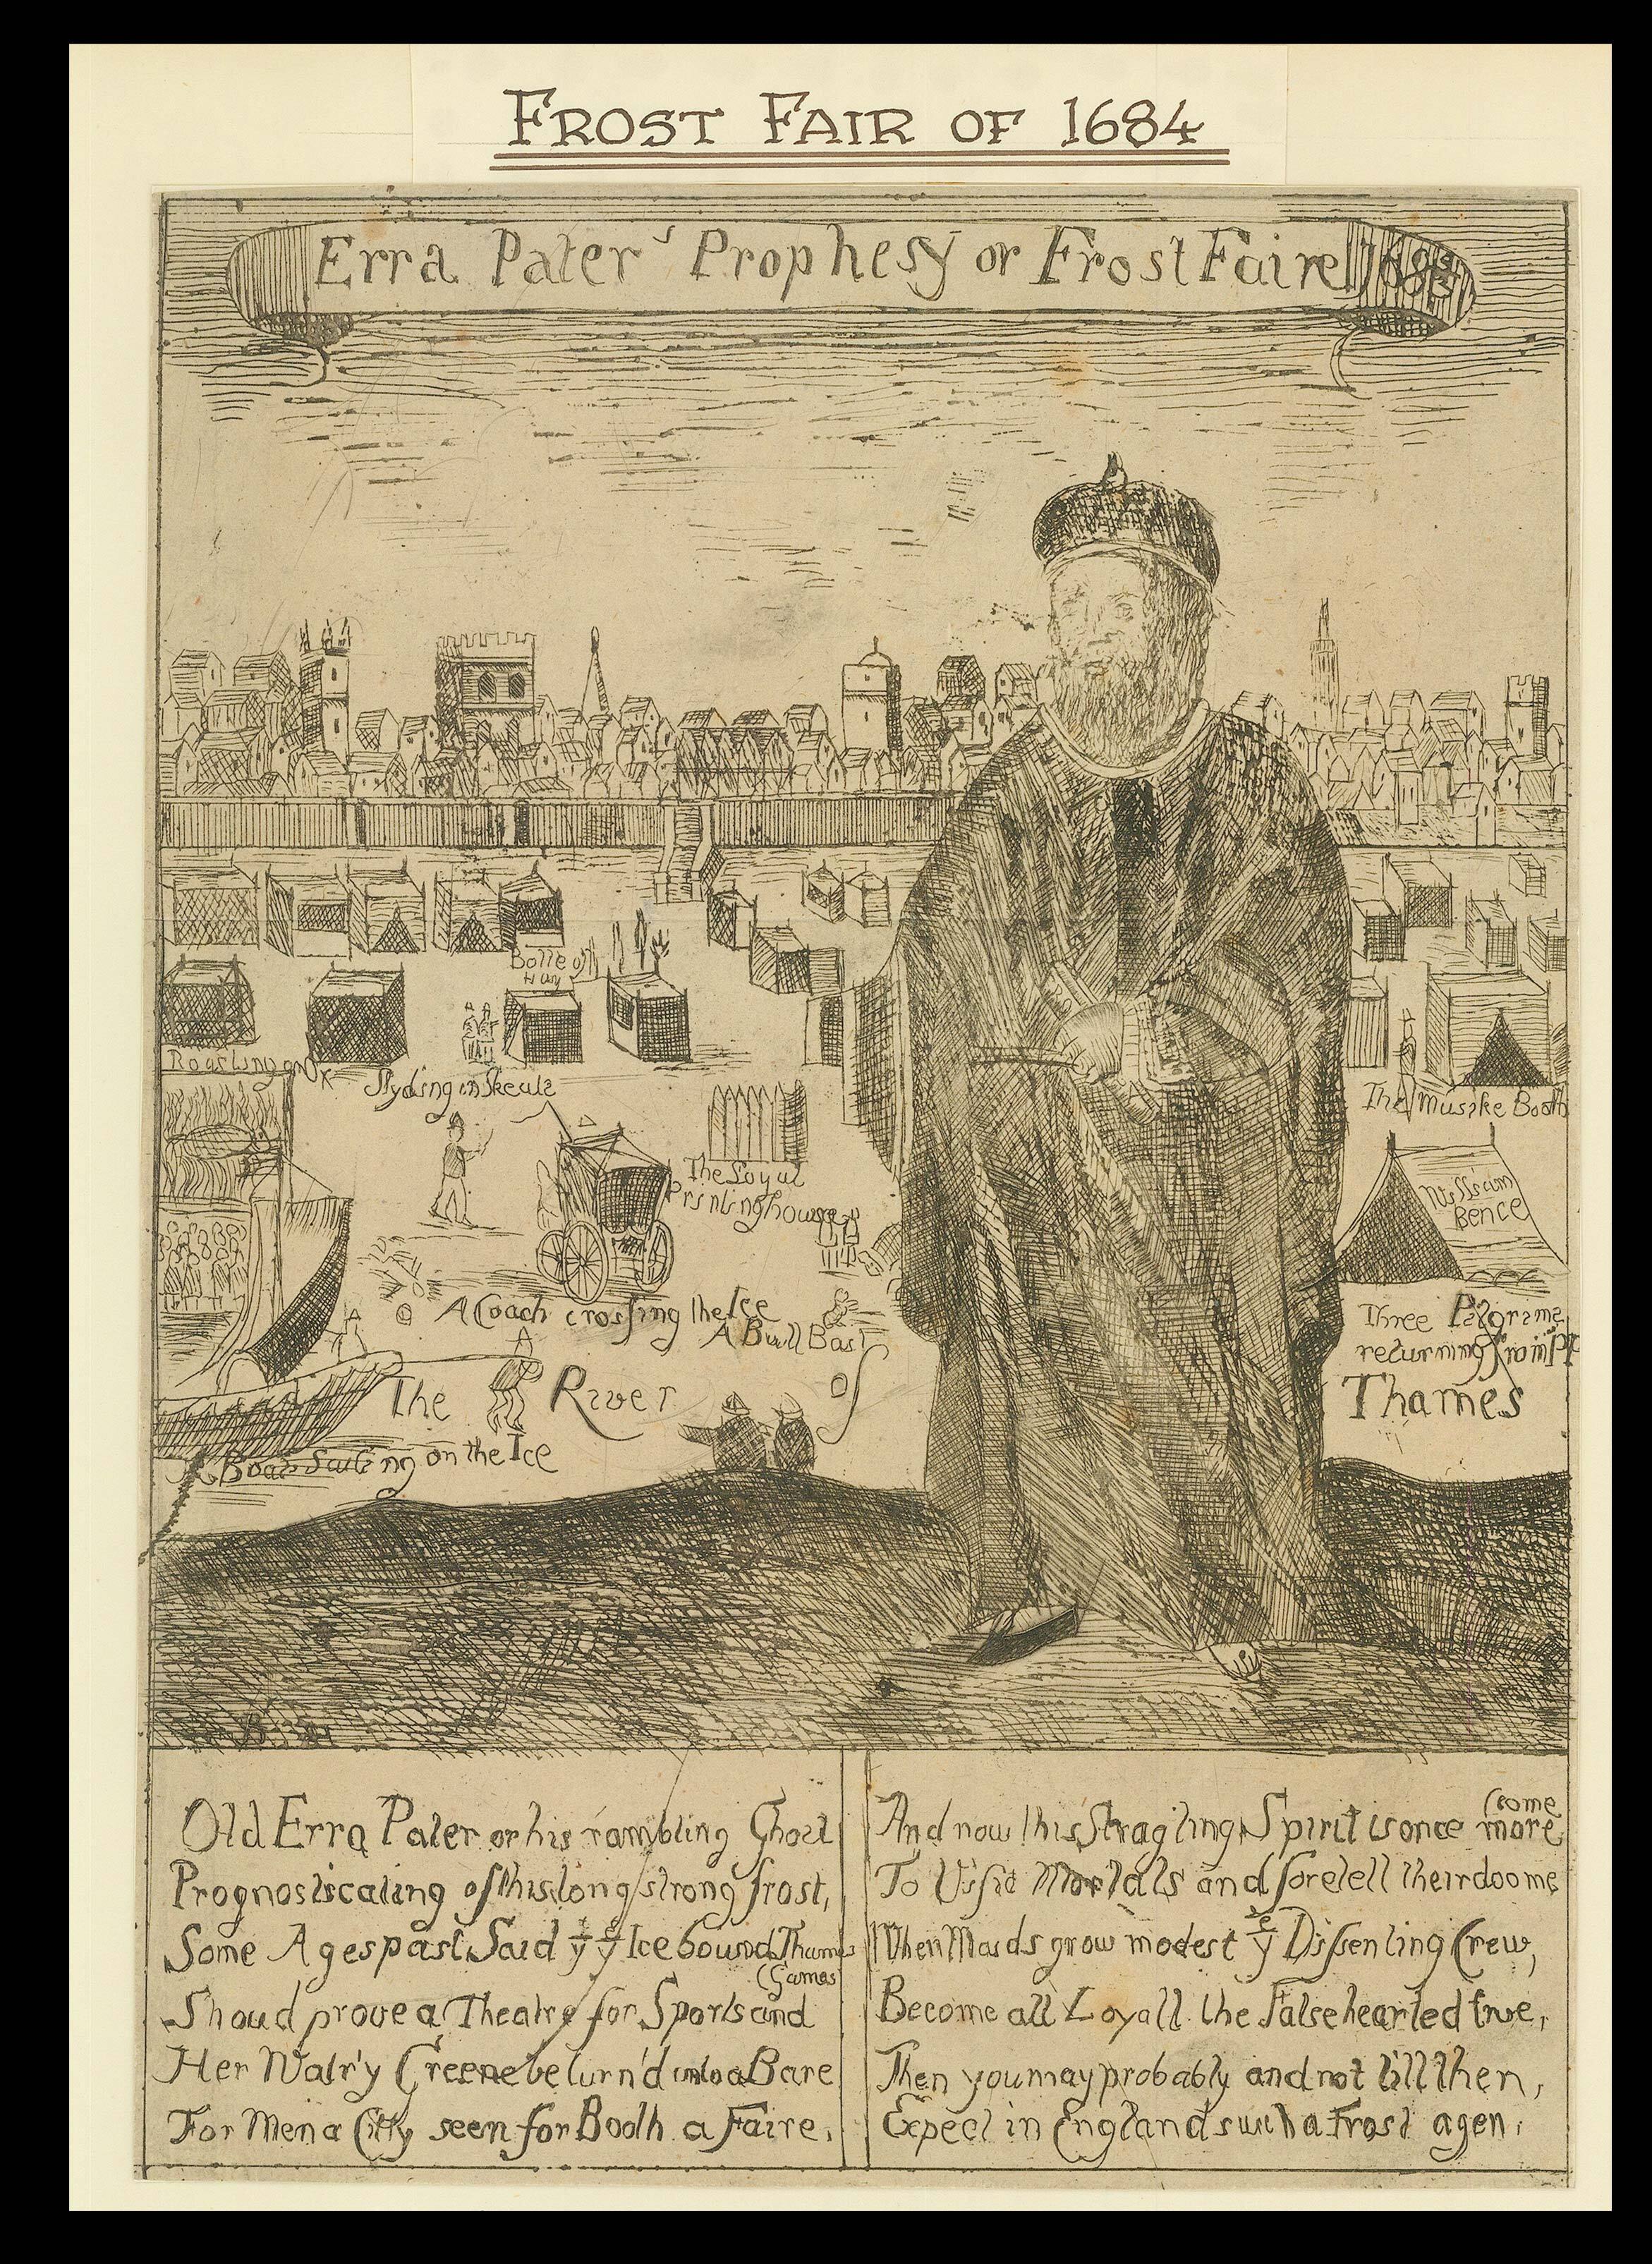 FROST FAIR OF 1684
Erra Pater's Prophesy or Frost Faire 1683
Botle of
Hay
Roasting an Ox
Slyding in Skeats
The Musike Booth
The Loyal
Printinghouse
William
Bence
A Coach crossing the Ice
A Bull Bait
Three Pilgrims
returning from
The River of Thames
A Boat Sailing on the Ice
Old Erra Pater or his rambling Ghost
Prognosticating of this long strong frost,
Some Ages past Said yt ye Ice bound Thames
Shoud prove a Theatre for Sports and (Games
Her Wat'ry Greene be turn'd into a Bare
For Men a Citty seen for Booth a Faire,
And now this Stragling Spirit is once more (come
To Visit Mortals and foretell their doome
When Maids grow modest ye Dissenting Crew,
Become all Loyall the False hearted true,
Then you may probably and not till then,
Expect in England such a Frost agen,